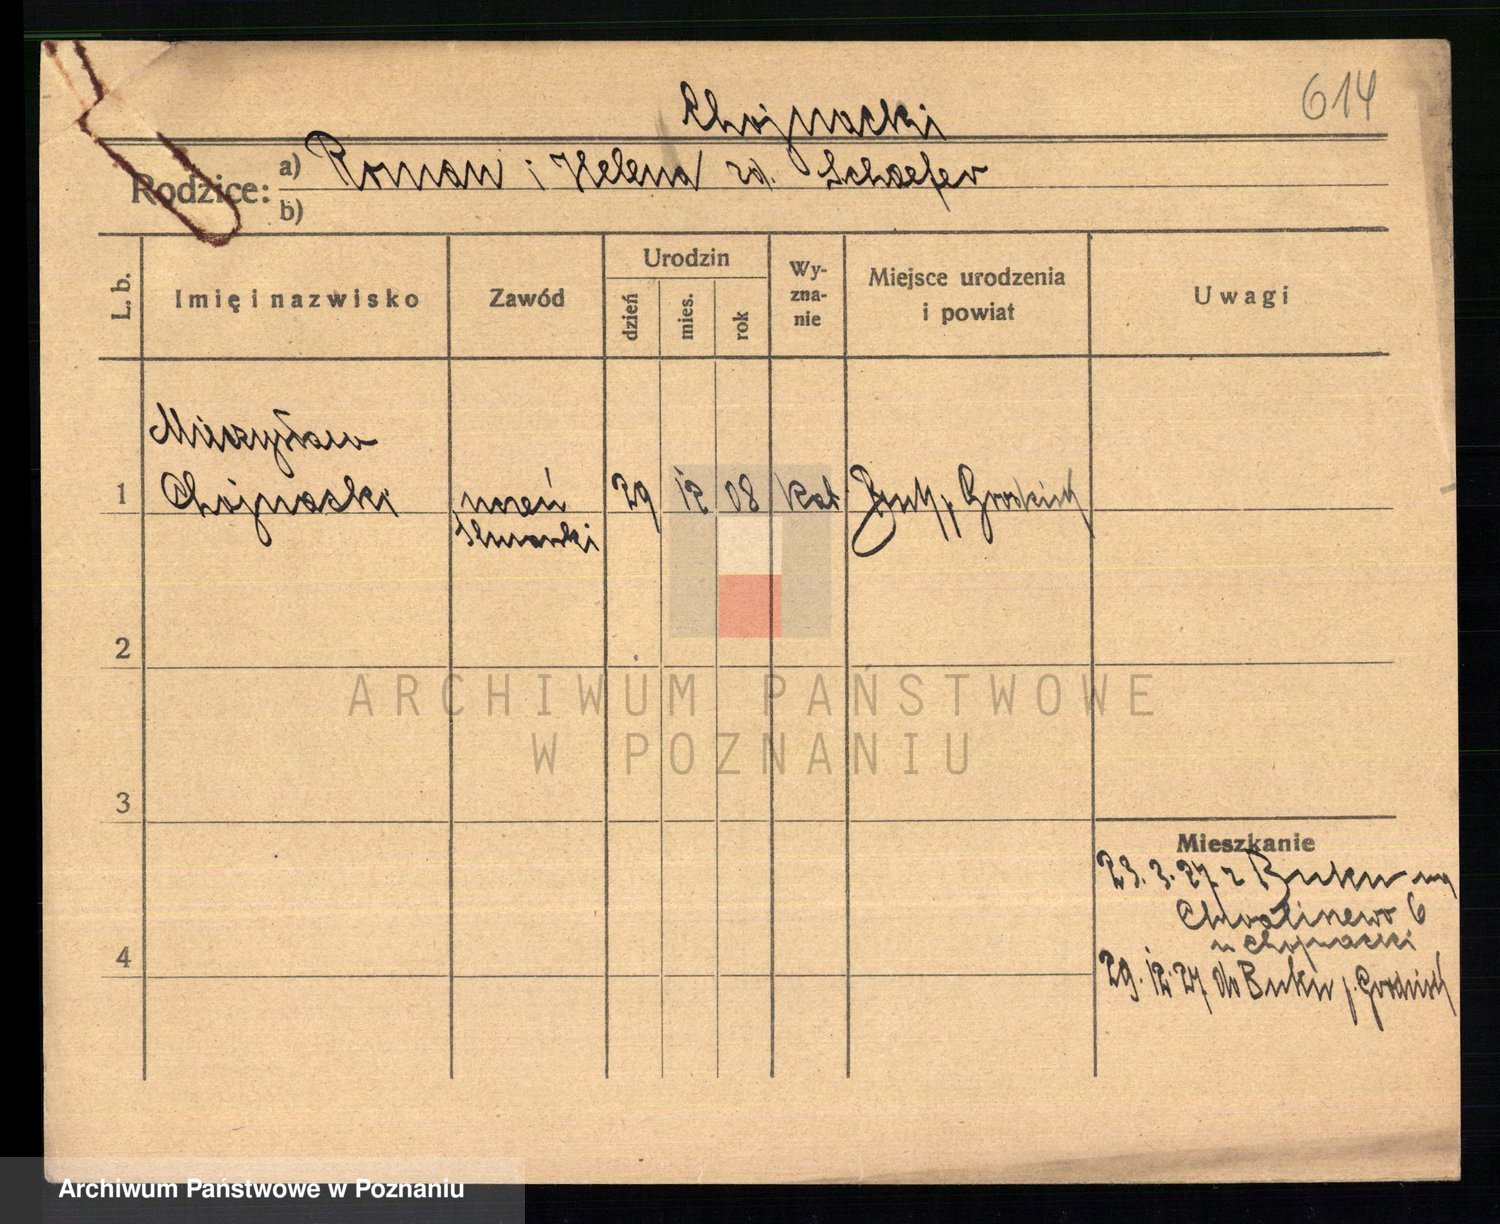 614
Chojnacki
Rodzice: a) Roman i Helena zd. Schaefer
b)
L. b.
Imię i nazwisko
Zawód
Urodzin
dzień
mies.
rok
Wy-
zna-
nie
Miejsce urodzenia
i powiat
Uwagi
Mieczysław
1 Chojnacki uczeń 29 12 08 kat Buk p. Grodzisk
ślusarski
2
ARCHIWUM PAŃSTWOWE
W POZNANIU
3
Mieszkanie
23. 3. 27. z Buku na
6
u Chojnacki
4
29. 12. 27 do Buku p. Grodzisk
Archiwum Państwowe w Poznaniu